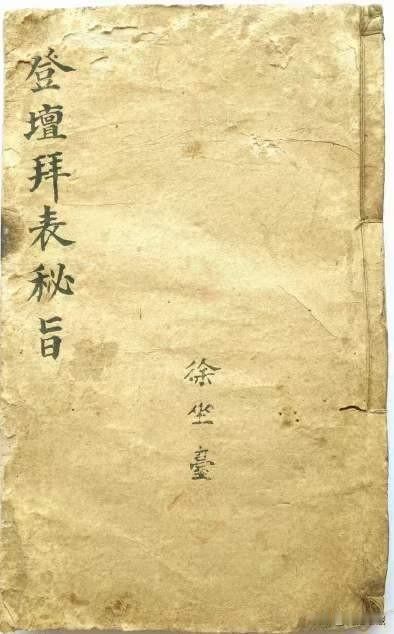 登壇拜表秘旨
徐坐臺